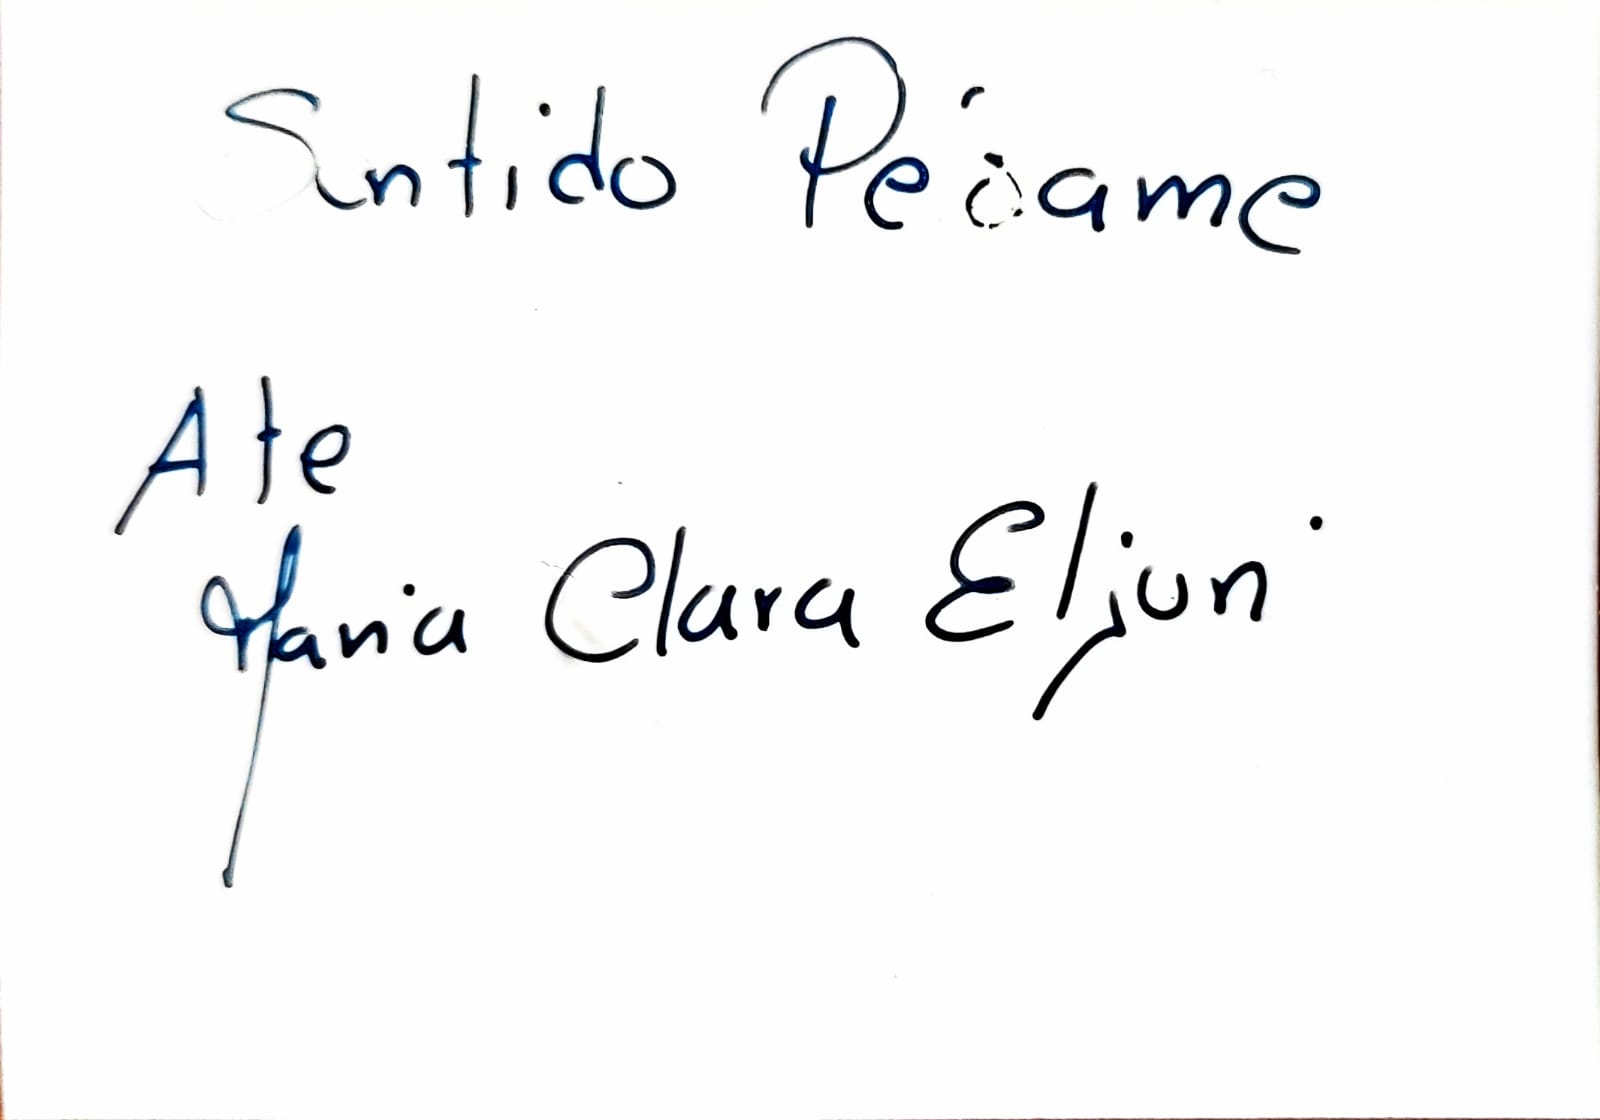 Sentido Pésame
Ate
Maria Clara Eljuri